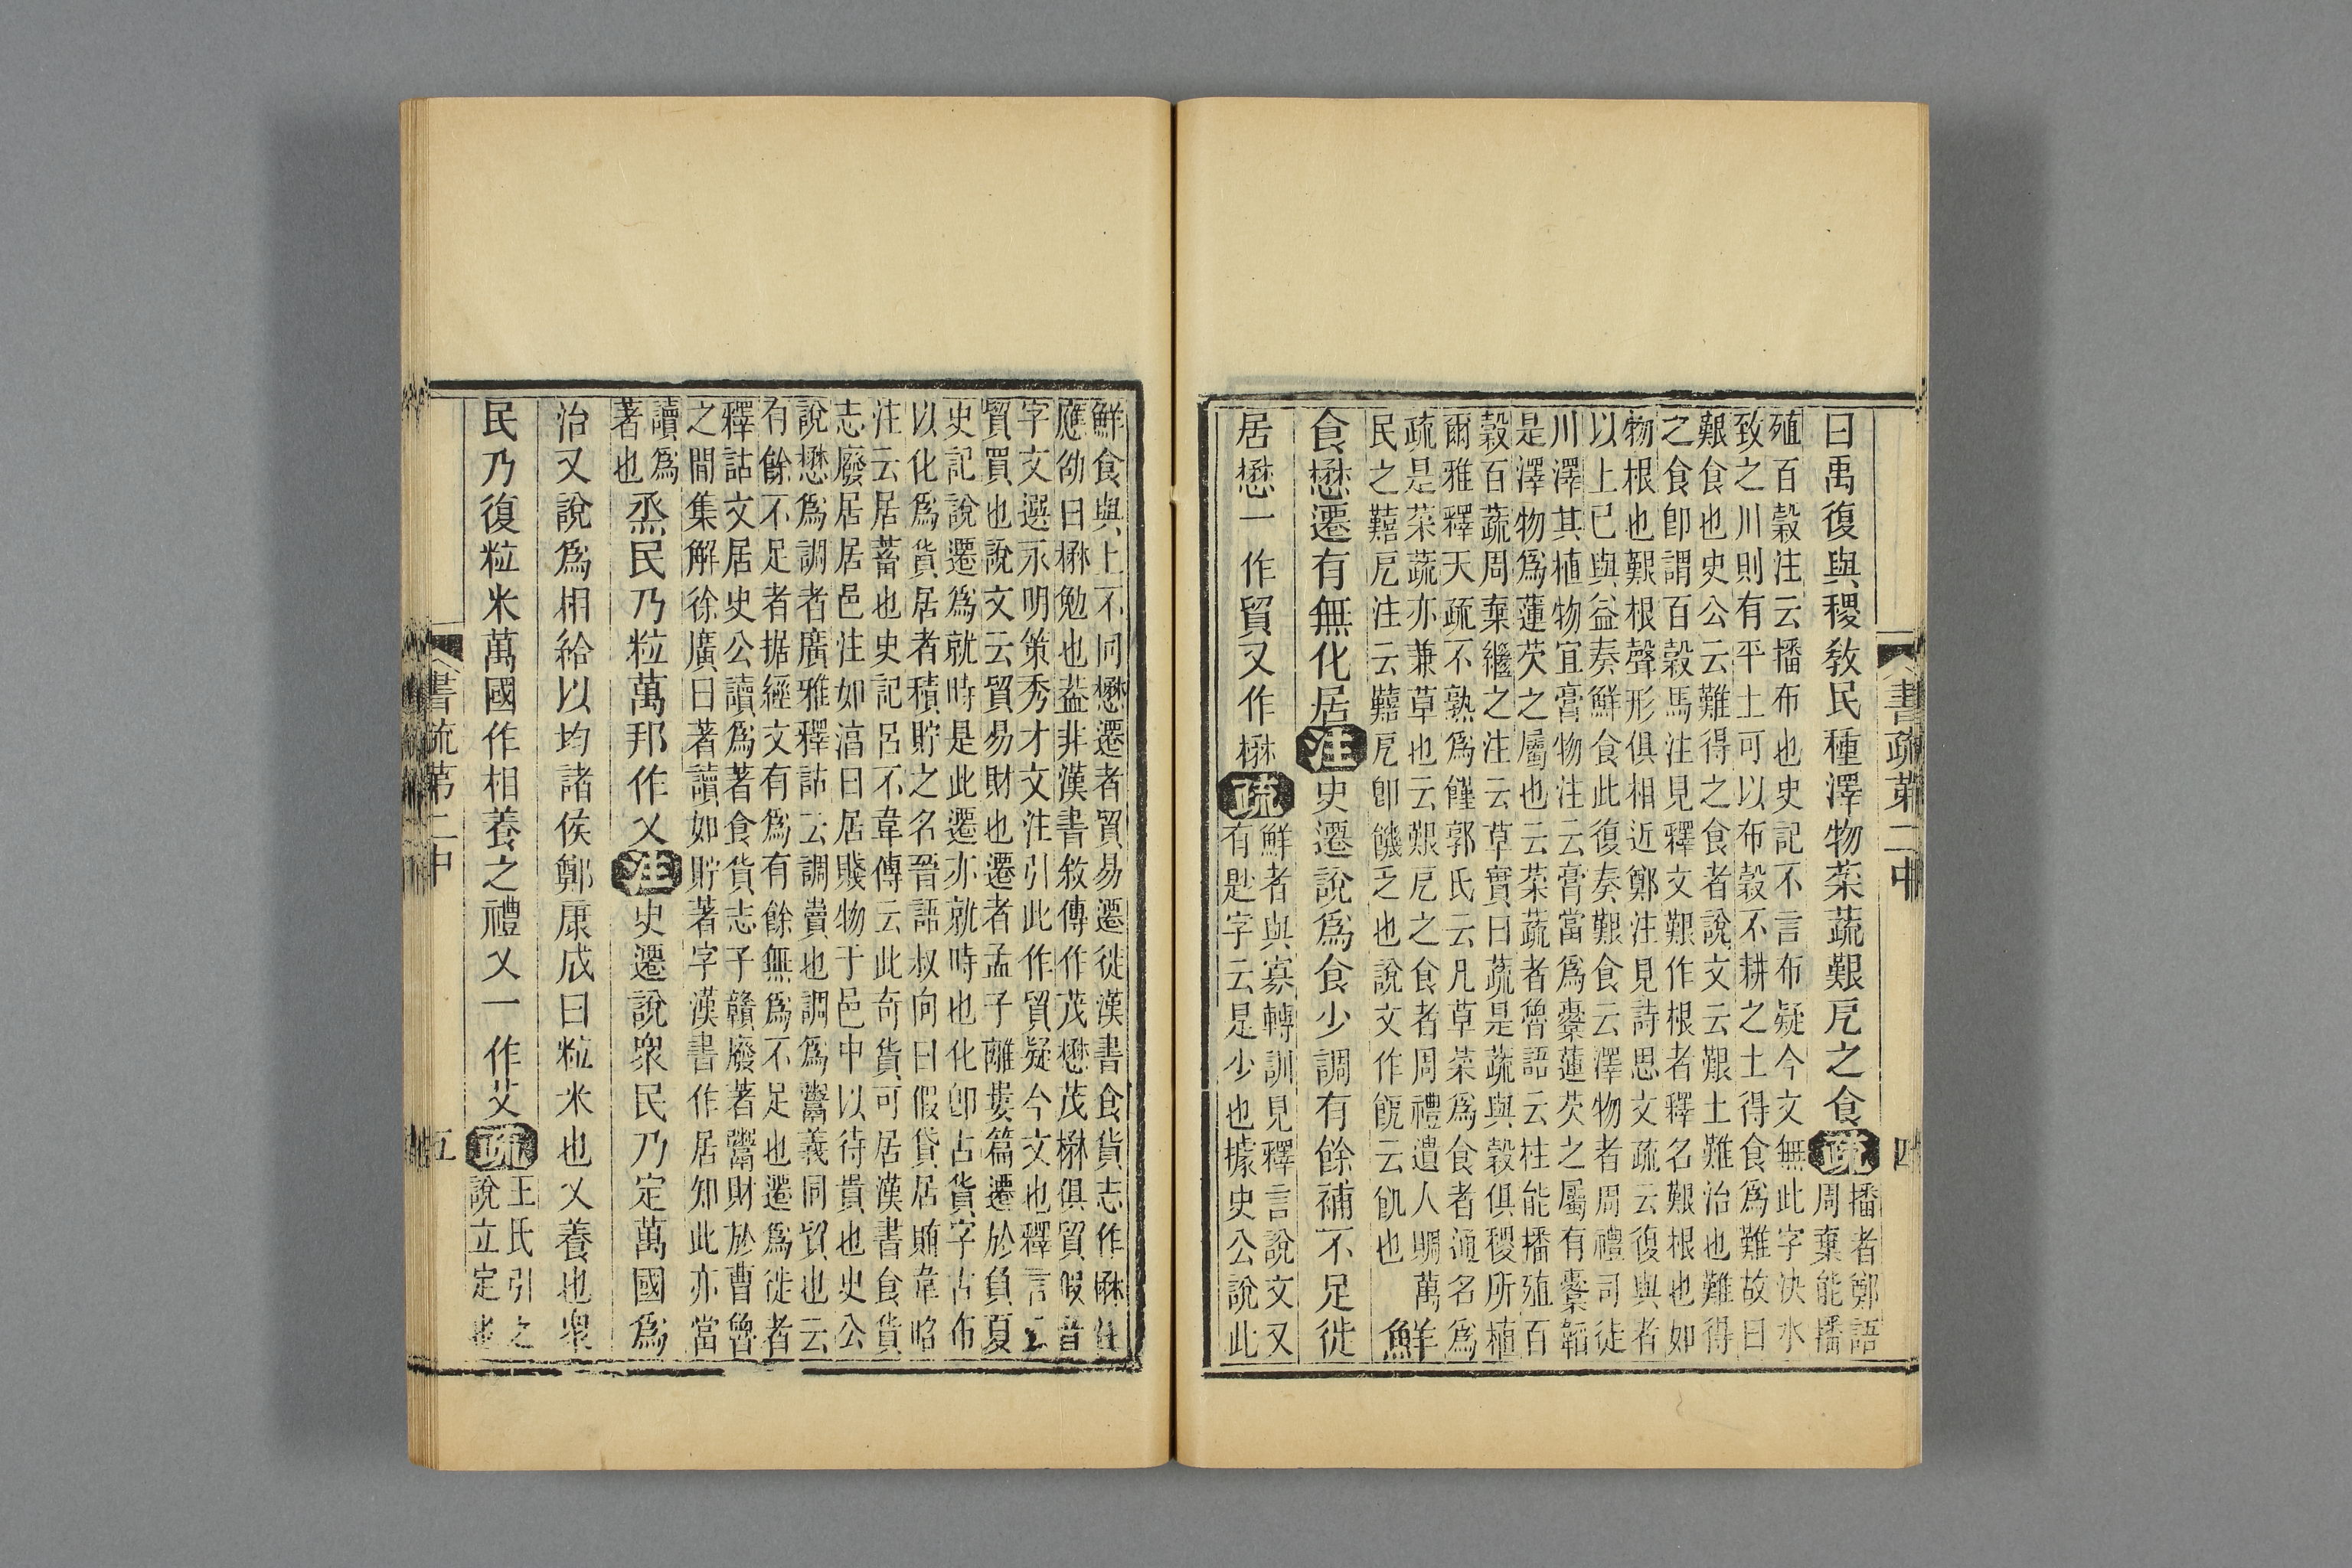 書疏第二中
四
曰禹復與稷敎民種澤物菜蔬艱戹之食疏播者鄭語
周棄能播
殖百穀注云播布也史記不言布疑今文無此字決水
致之川則有平土可以布穀不耕之土得食爲難故曰
艱食也史公云難得之食者說文云艱土難治也難得
之食卽謂百穀馬注見釋文艱作根者釋名艱根也如
物根也艱根聲形俱相近鄭注見詩思文疏云復與者
以上巳與益奏鮮食此復奏艱食云澤物者周禮司徒
川澤其植物宜膏物注云膏當爲櫜蓮芡之屬有櫜韜
是澤物爲蓮芡之屬也云菜蔬者魯語云柱能播殖百
穀百蔬周棄繼之注云草實曰蔬是蔬與穀俱稷所植
爾雅釋天疏不熟爲饉郭氏云凡草菜爲食者通名爲
疏是菜蔬亦兼草也云艱戹之食者周禮遺人明萬
民之囏戹注云囏戹卽饑乏也說文作飢云飢也 鮮
食懋遷有無化居注史遷說爲食少調有餘補不足徙
居懋一作貿又作楙疏鮮者與寡轉訓見釋言說文又
有尟字云是少也據史公說此
鮮食與上不同懋遷者貿易遷徙漢書食貨志作楙
應劭曰楙勉也葢非漢書敘傳作茂懋茂楙俱貿假音
字文選永明策秀才文注引此作貿疑今文也釋言
貿買也說文云貿易財也遷者孟子離婁篇遷於負夏
史記說遷爲就時是此遷亦就時也化卽古貨字古布
以化爲貨居者積貯之名晉語叔向曰假貸居賄韋昭
注云居蓄也史記呂不韋傳云此奇貨可居漢書食貨
志廢居居邑注如湻曰居賤物于邑中以待貴也史公
說懋爲調者廣雅釋詁云調賣也調爲鬻義同貿也云
有餘不足者据經文有爲有餘無爲不足也遷爲徙者
釋詁文居史公讀爲著食貨志子贛廢著鬻財於曹魯
之閒集解徐廣曰著讀如貯著字漢書作居知此亦當
讀爲
著也 烝民乃粒萬邦作乂注史遷說眾民乃定萬國爲
治又說爲相給以均諸侯鄭康成曰粒米也乂養也眾
民乃復粒米萬國作相養之禮乂一作艾疏王氏引之
說立定
書疏第二中
五